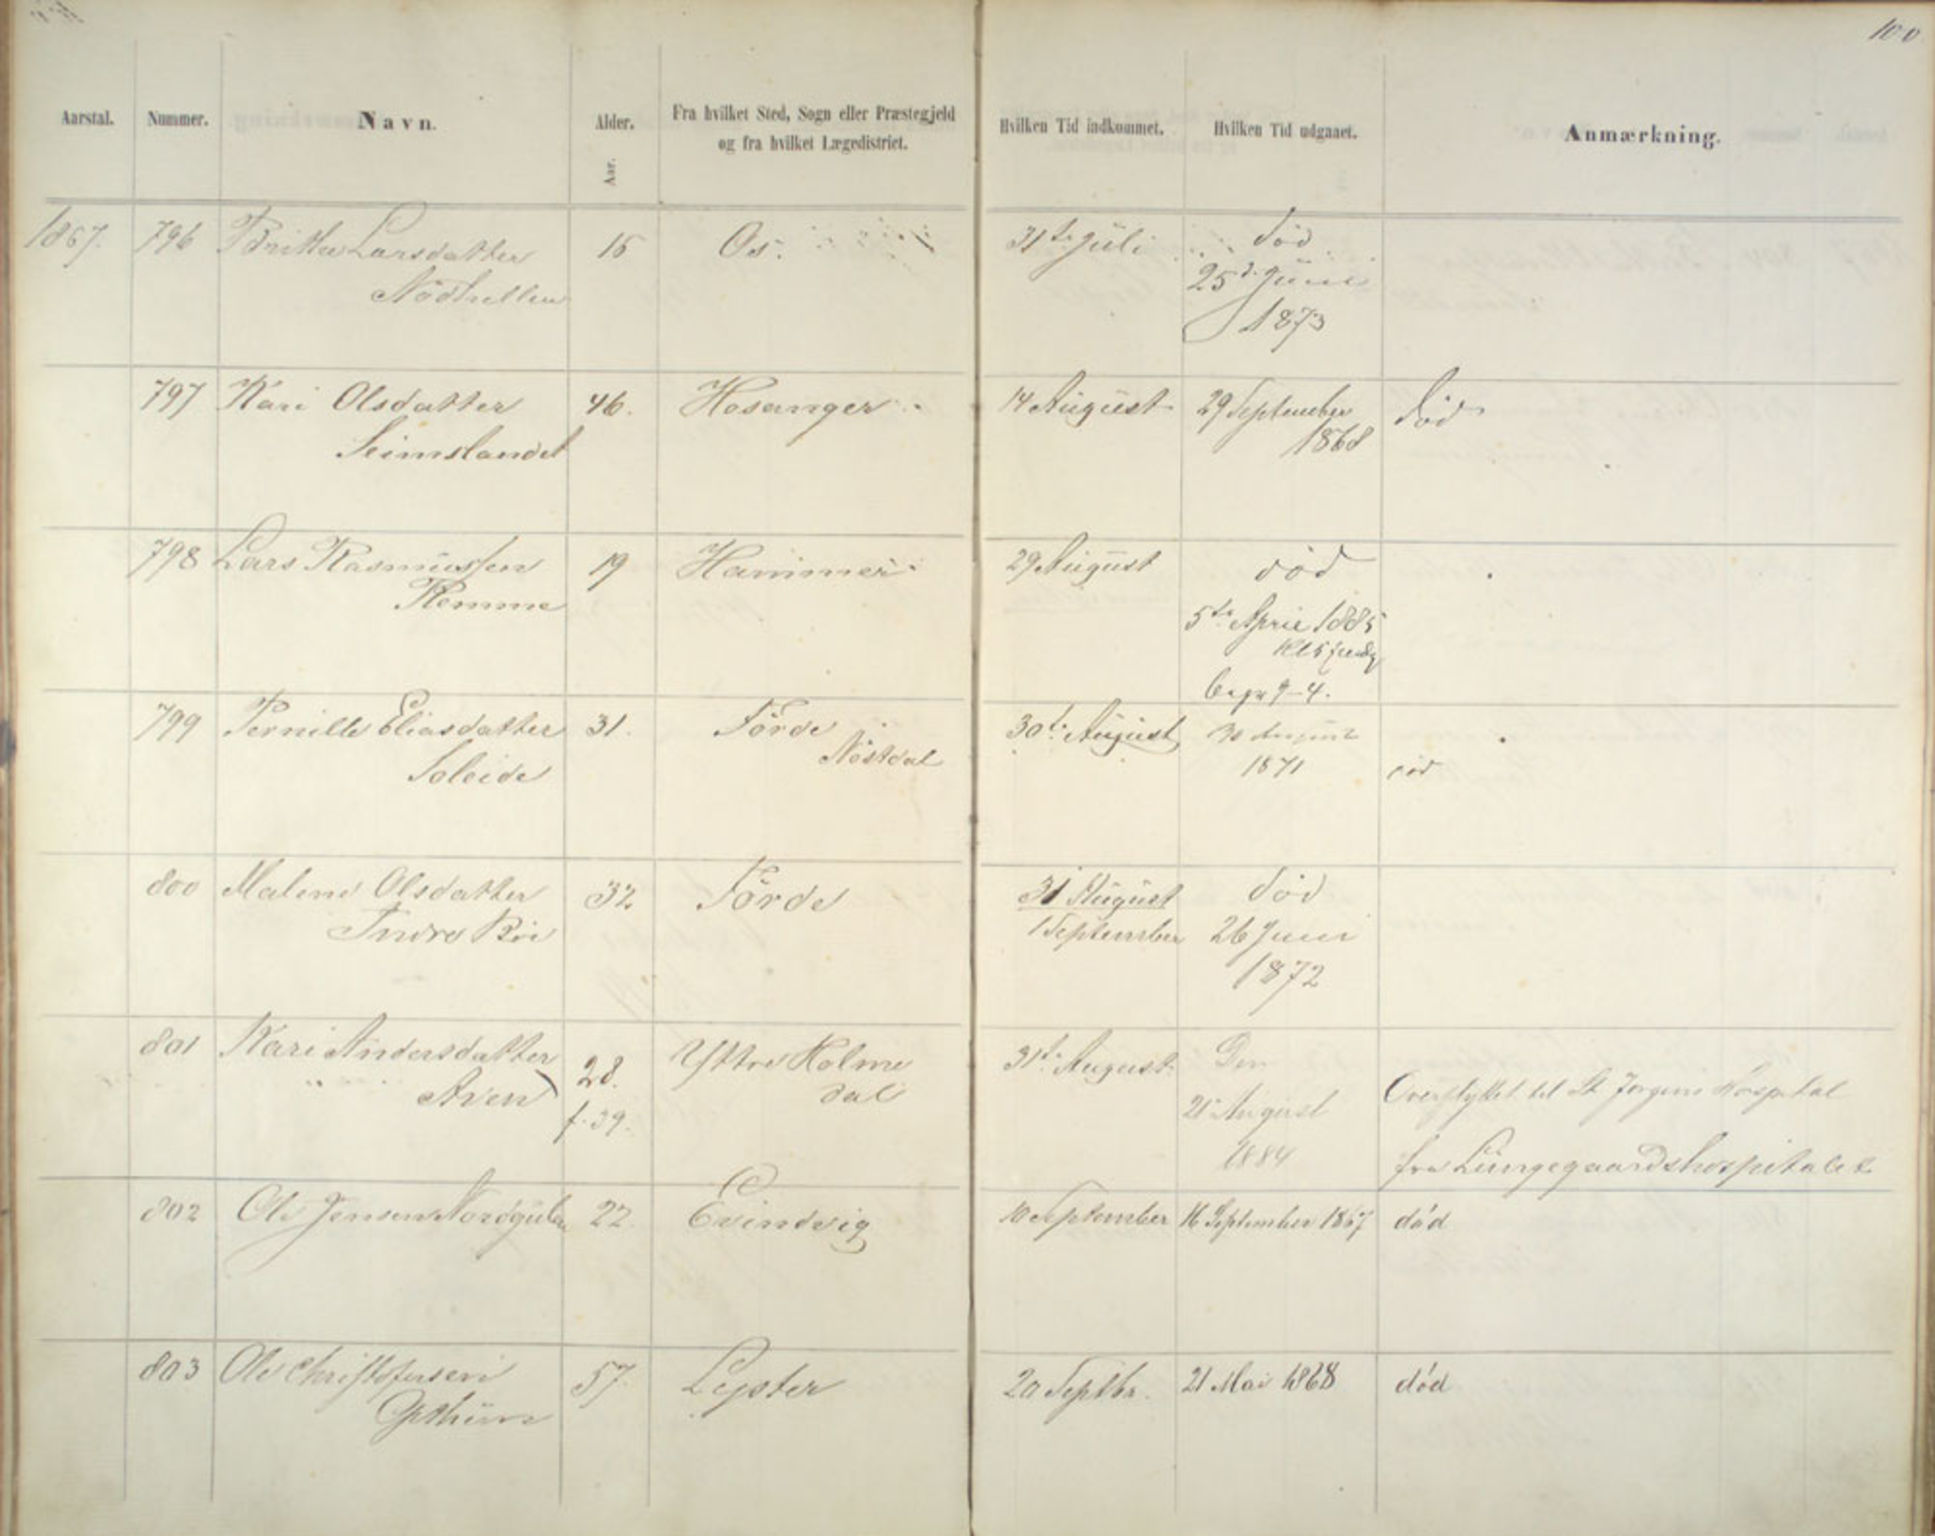 100
Aarstal. Nummer. Navn. Alder. Fra hvilket Sted, Sogn eller Præstegjeld Hvilken Tid indkommet. Hvilken Tid udgaaet. Anmærkning.
Aar. og fra hvilket Lægedistrict.
1867. 796 Britha Larsdatter 15 Os. 31te Juli død
25de Juni
1873
797 Kari Olsdatter 46. Hosanger 14 August 29 September død
Seimslandet 1868
798 Lars Rasmussen 19 Hammer 29 August død
Hemme 5te April 1885
Kl 5
Begr 9-4.
799 Pernille Eliasdatter 31. Förde 30te August 30 August
Nöstdal
Soleide 1871 død
800 Malene Olsdatter 32 Förde 31 August død
Indre Böe 1 September 26 Juni
1872
801 Kari Andersdatter 28. Yttre Holme 31te August Den
Aven dal 21 August Overflyttet til St Jørgens Hospital
f. 39. 1884 fra Lungegaardshospitalet
802 Ole Jensen 22. Evindvig 10 September 16 September 1867 död
803 Ole Christofersen 57. Lyster 20 Septbr. 21 Mai 1868 död